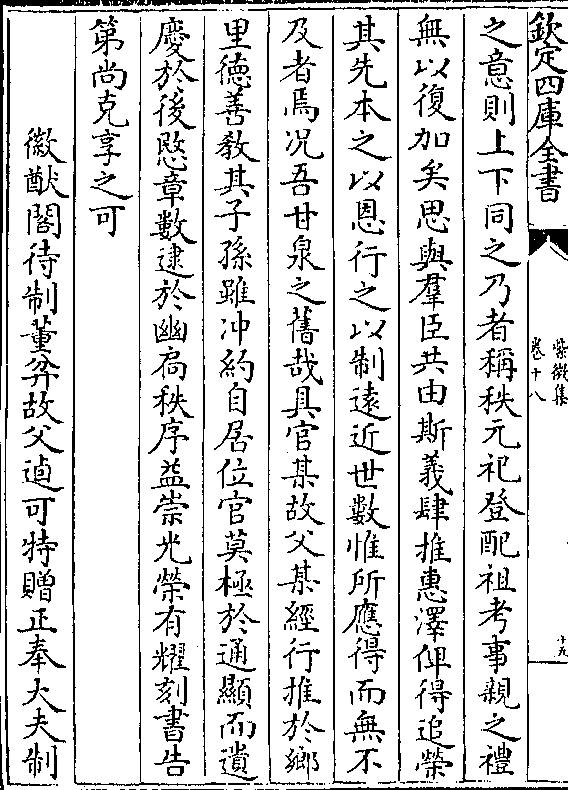 欽定四庫全書
紫微集
卷十八
十五
之意則上下同之乃者稱秩元祀登配祖考事親之禮
無以復加矣思與羣臣共由斯義肆推惠澤俾得追榮
其先本之以恩行之以制逺近世數惟所應得而無不
及者焉况吾甘泉之舊哉具官某故父某經行推於鄉
里徳善教其子孫雖冲約自居位官莫極於通顯而遺
慶於後愍章數逮於幽扄秩序益崇光榮有耀刻書告
第尚克享之可
徽猷閣待制董弅故父逌可特贈正奉大夫制